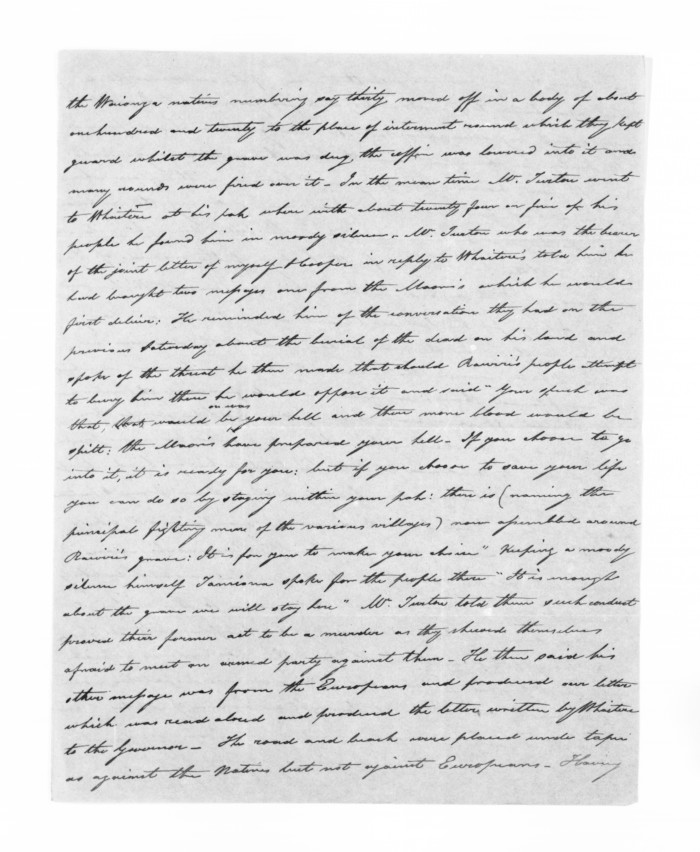 the Waionga natives numbering say thirty moved off in a body of about
one hundred and twenty to the place of interment round which they kept
guard whilst the grave was dug, the coffin was lowered into it and
many rounds were fired over it – In the mean time Mr. Turton went
to Whaitere at his pah where with about twenty four or five of his
people he found him in moody silence. Mr. Turton who was the bearer
of the joint letter of myself & Cooper in reply to Whaitere's told him he
had brought two messages one from the Maori's which he would
first deliver: He reminded him of the conversation they had on the
previous Saturday about the burial of the dead on his land and
spoke of the threat he then made that should Rawiri's people attempt
to bury him there he would oppose it and said "Your speech was
that, that would be your hell and there more blood would be
spilt: the Maori's have prepared your hell – If you choose to go
into it, it is ready for you: but if you choose to save your life
you can do so by staying within your pah: there is (naming the
principal fighting men of the various villages) now assembled around
Rawiri's grave: It is for you to make your choice" Keeping a moody
silence himself Tamiona spoke for the people there "It is enough
about the grave we will stay here" Mr. Turton told them such conduct
proved their former act to be a murder as they shewed themselves
afraid to meet an armed party against them – He then said his
other message was from the Europeans and produced our letter
which was read aloud and produced the letter written by Whaitere
to the Governor – The road and beach were placed under tapu
as against the Natives but not against Europeans – Having